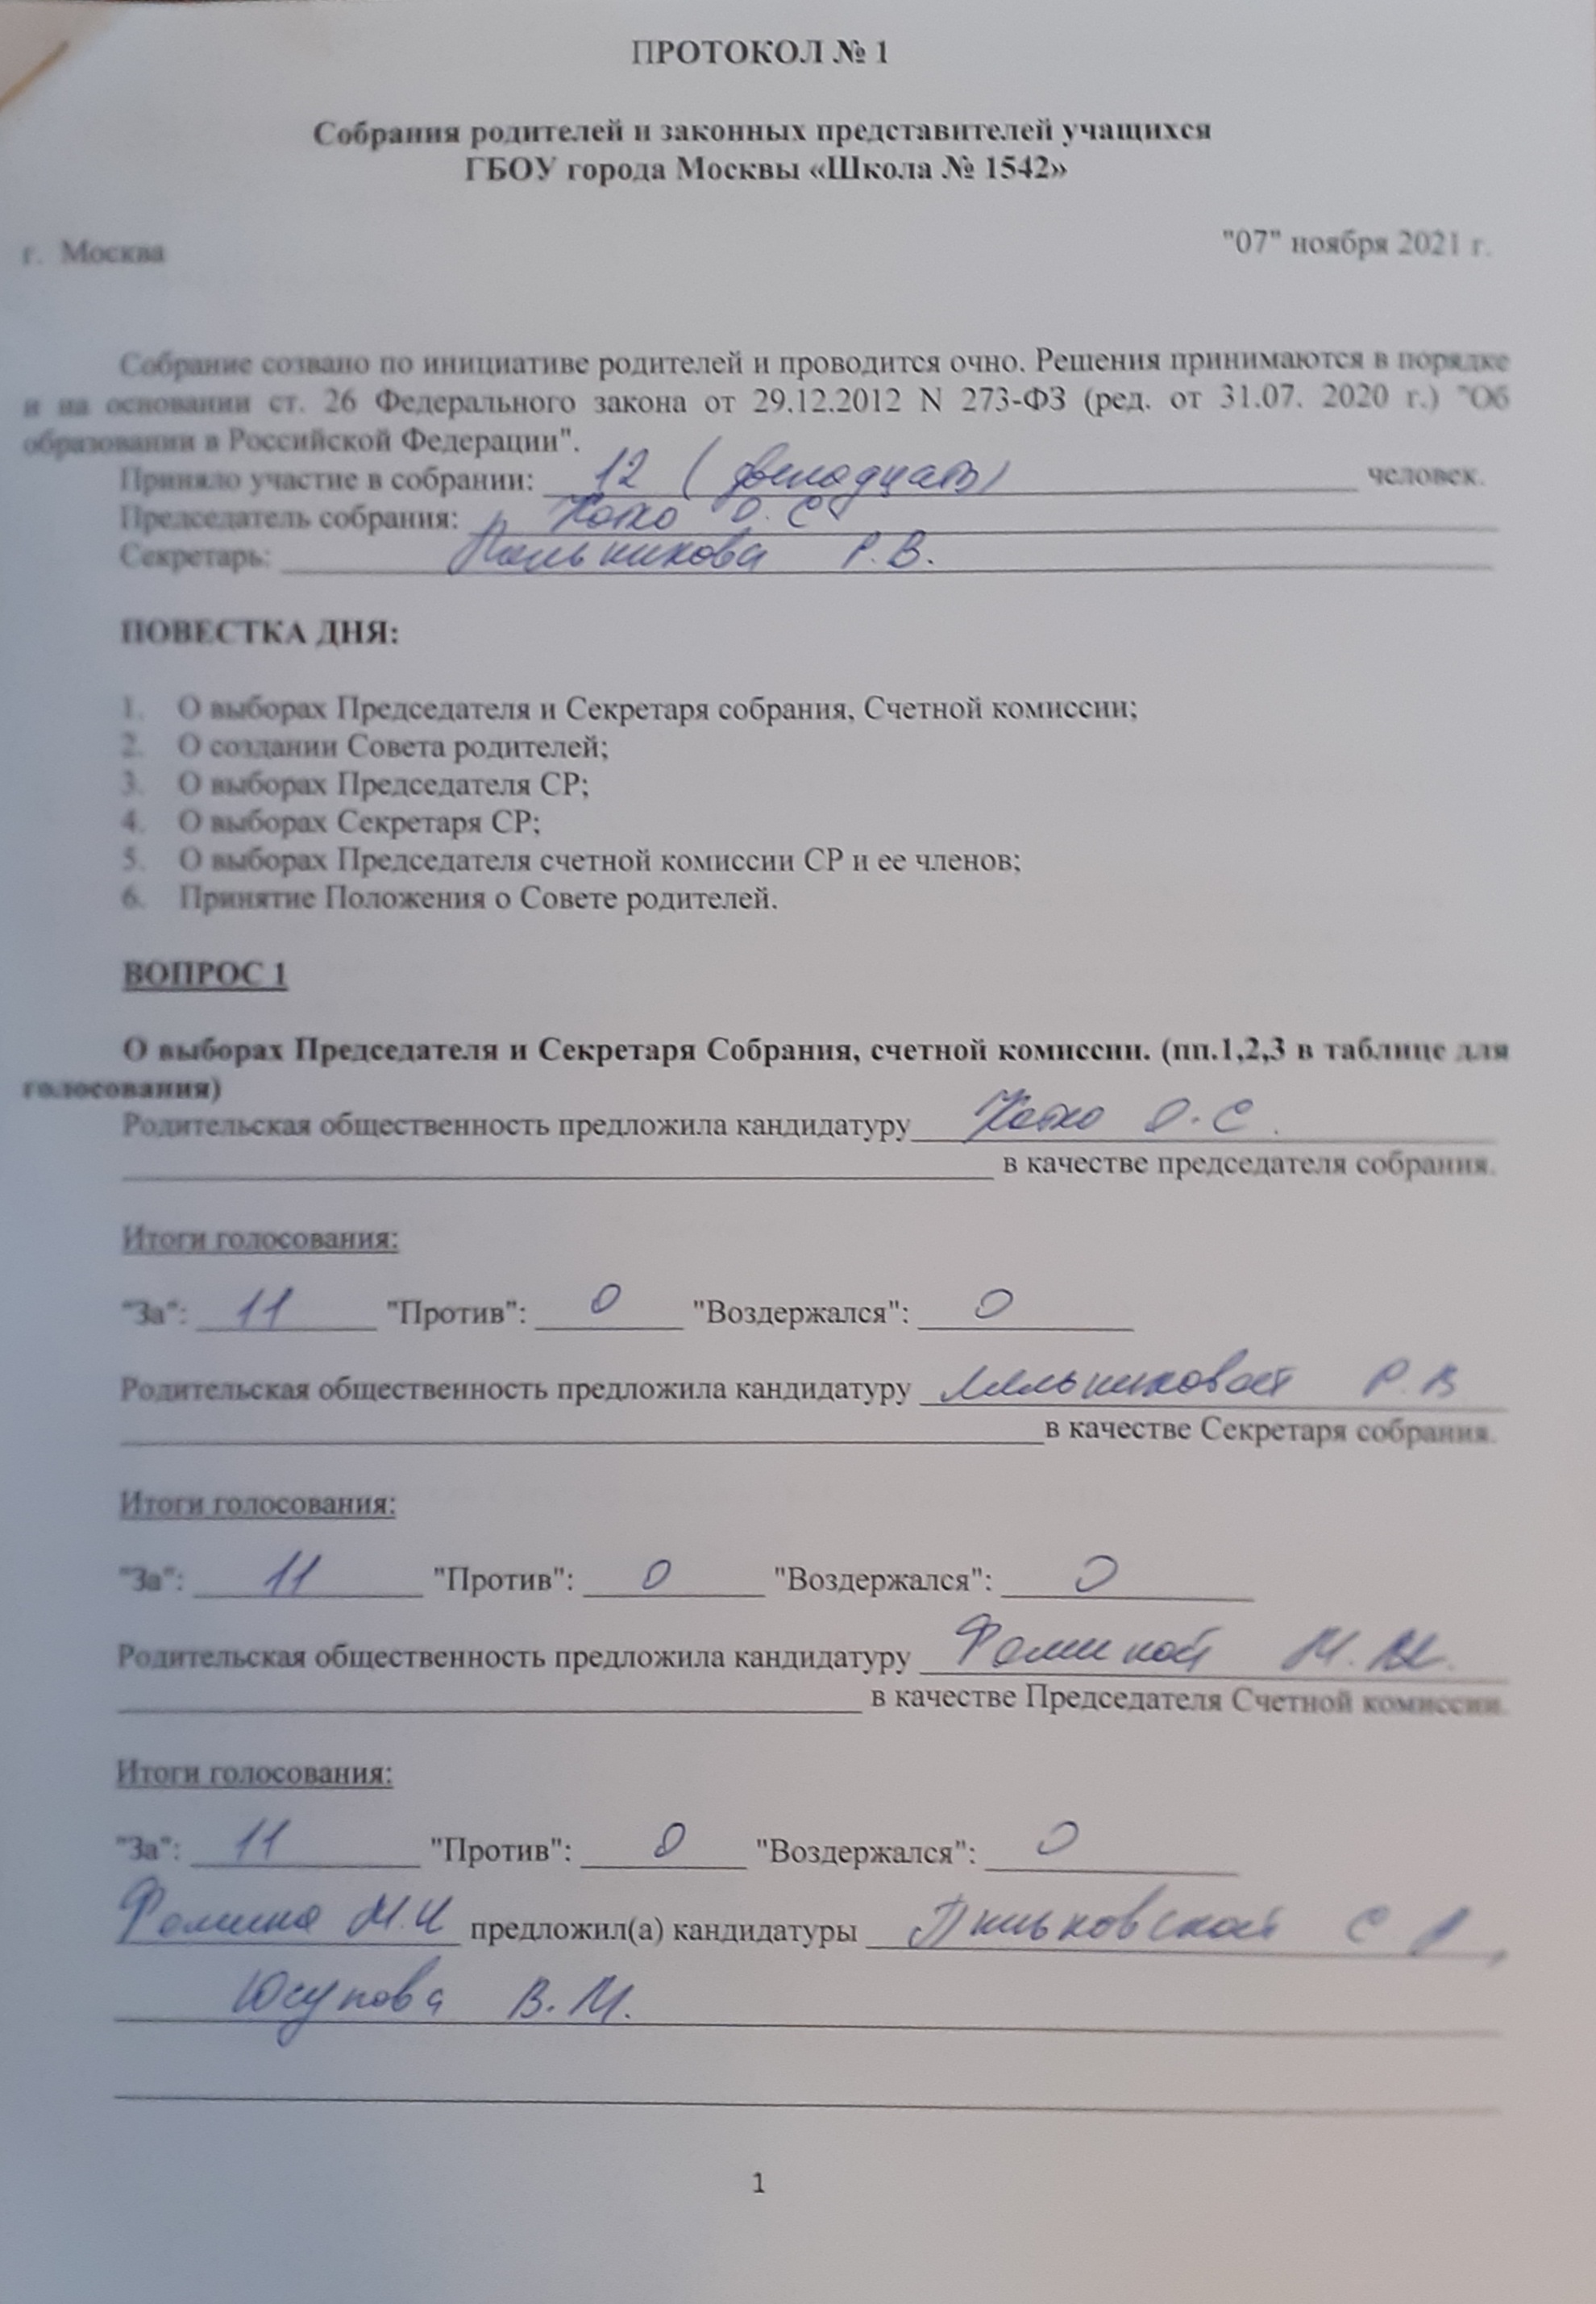 ПРОТОКОЛ № 1
Собрания родителей и законных представителей учащихся
ГБОУ города Москвы «Школа № 1542»
г. Москва "07" ноября 2021 г.
Собрание созвано по инициативе родителей и проводится очно. Решения принимаются в порядке
и на основании ст. 26 Федерального закона от 29.12.2012 N 273-ФЗ (ред. от 31.07. 2020 г.) "Об
образовании в Российской Федерации".
Приняло участие в собрании: 12 (двенадцать) человек.
Председатель собрания: О. С
Секретарь: Мельникова Р.В.
ПОВЕСТКА ДНЯ:
1. О выборах Председателя и Секретаря собрания, Счетной комиссии;
2. О создании Совета родителей;
3. О выборах Председателя СР;
4. О выборах Секретаря СР;
5. О выборах Председателя счетной комиссии СР и ее членов;
6. Принятие Положения о Совете родителей.
ВОПРОС 1
О выборах Председателя и Секретаря Собрания, счетной комиссии. (пп.1,2,3 в таблице для
голосования)
Родительская общественность предложила кандидатуру О.С.
в качестве председателя собрания.
Итоги голосования:
"За": 11 "Против": 0 "Воздержался": 0
Родительская общественность предложила кандидатуру Мельниковой Р.В
в качестве Секретаря собрания.
Итоги голосования:
"За": 11 "Против": 0 "Воздержался": 0
Родительская общественность предложила кандидатуру Фоминой М.И.
в качестве Председателя Счетной комиссии.
Итоги голосования:
"За": 11 "Против": 0 "Воздержался": 0
Фомина М.И предложил(а) кандидатуры С
Юсупова В.М.
1